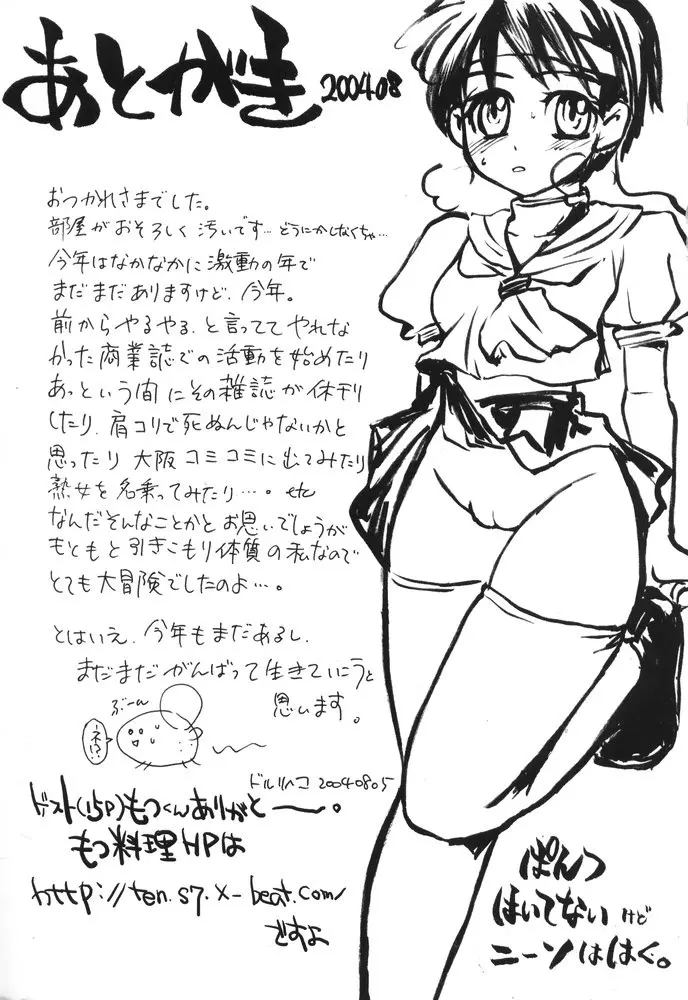 あとがき 2004.08
おつかれさまでした。
部屋がおそろしく汚いです…どうにかしなくちゃ…
今年はなかなかに激動の年で
まだまだありますけど、今年。
前からやるやる、と言っててやれな
かった商業誌での活動を始めたり
あっという間にその雑誌が休刊
したり、肩コリで死ぬんじゃないかと
思ったり 大阪コミコミに出てみたり
熟女を名乗ってみたり…。etc
なんだそんなことかとお思いでしょうが
もともと引きこもり体質の私なので
とても大冒険でしたのよ…。
とはいえ、今年もまだあるし、
まだまだがんばって生きていこうと
思います。
ぶーん
ネ!?
ドルリハコ 20040805
ゲスト(15P)もつくんありがとー。
もつ料理HPは
http://ten.s7.x-beat.com/
ですよ
ぱんつ
はいてないけど
ニーソははく。